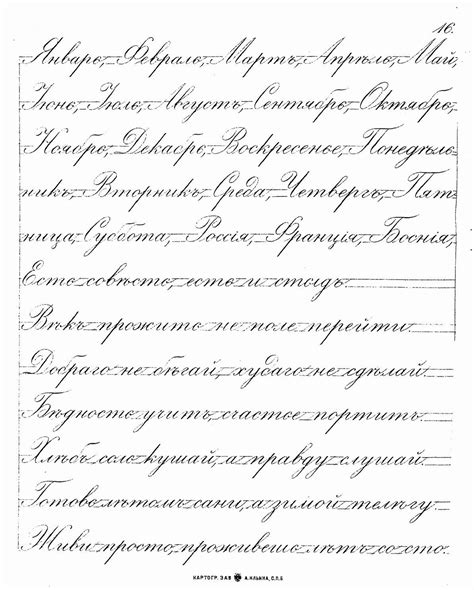 16.
Январь, Февраль, Мартъ, Апрѣль, Май,
Іюнь, Іюль, Августъ, Сентябрь, Октябрь,
Ноябрь, Декабрь, Воскресенье, Понедѣль-
никъ, Вторникъ, Среда, Четвергъ, Пят-
ница, Суббота, Россія, Франція, Боснія,
Есть совѣсть, есть и стыдъ
Вѣкъ прожить не поле перейти
Добраго не бѣгай, худаго не сдѣлай
Бѣдность учитъ, счастье портитъ
Хлѣбъ соль кушай, а правду слушай
Готовь лѣтомъ сани, а зимой телѣгу
Живи просто, проживешь лѣтъ со сто
КАРТОГР. ЗАВ. А. ИЛЬИНА, С.П.Б